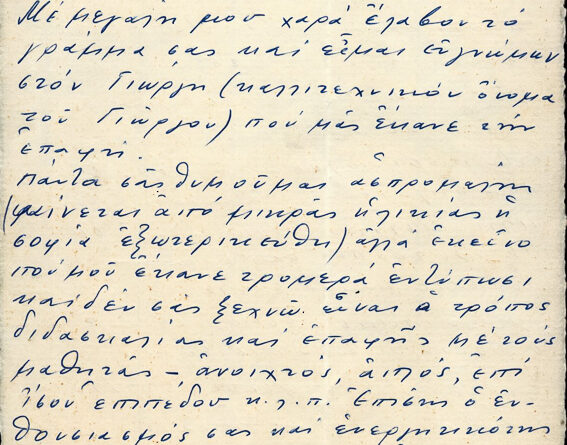 Μέ μεγάλη μου χαρά ἔλαβον τό
γράμμα σας καί εἶμαι εὐγνώμων
στόν Γιώργη (καλλιτεχνικόν ὄνομα
τοῦ Γιώργου) πού μᾶς ἔκανε τήν
ἐπαφή.
Πάντα σᾶς θυμοῦμαι ἀσπρομάλλη
(φαίνεται ἀπό μικρᾶς ἡλικίας ἡ
σοφία ἐξωτερικεύθη) ἀλλά ἐκεῖνο
πού μοῦ ἔκανε τρομερά ἐντύπωσι
καί δέν σᾶς ξεχνῶ εἶναι ὁ τρόπος
διδασκαλίας καί ἐπαφῆς μέ τούς
μαθητάς – ἀνοιχτός, ἁπλός, ἐπί
ἴσου ἐπιπέδου κ.λ.π. Ἐπίσης ὁ ἐν-
θουσιασμός σας καί ἐνεργητικότης